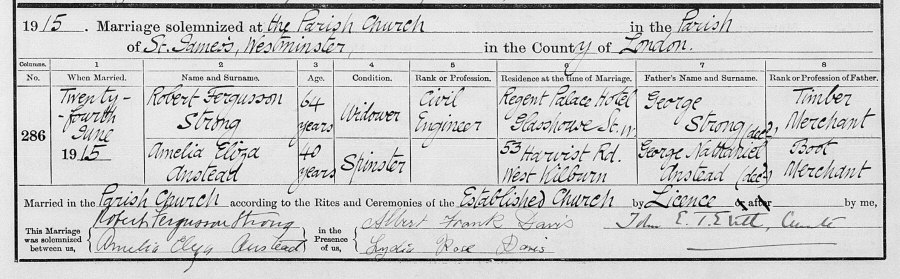 1915. Marriage solemnized at the Parish Church in the Parish
of St. James's, Westminster, in the County of London.
Columns. 1 2 3 4 5 6 7 8
No. When Married. Name and Surname. Age. Condition. Rank or Profession. Residence at the time of Marriage. Father's Name and Surname. Rank or Profession of Father.
286
Twenty-
-fourth
June
1915
Robert Fergusson
Strong
64
years
Widower
Civil
Engineer
Regent Palace Hotel
Glasshouse St. W.
George
Strong (decd)
Timber
Merchant
Amelia Eliza
Anstead
40
years
Spinster
53
Harvist Rd.
West Kilburn
George Nathaniel
Anstead (decd)
Boot
Merchant
Married in the Parish Church according to the Rites and Ceremonies of the Established Church by Licence or after by me,
This Marriage
was solemnized
between us,
Robert Fergusson Strong
Amelia Eliza Anstead
in the
Presence
of us,
Albert Frank Davis
Lydia Rose Davis
John E. T. Curate